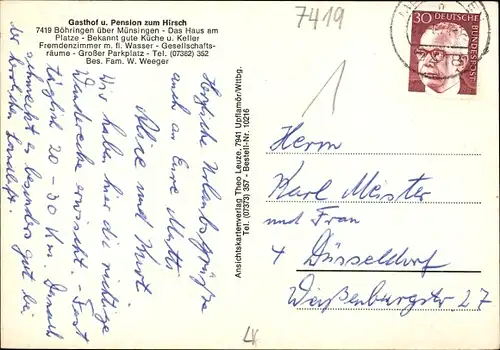 Gasthof u. Pension zum Hirsch
7419 Böhringen über Münsingen - Das Haus am
Platze - Bekannt gute Küche u. Keller
Fremdenzimmer m. fl. Wasser - Gesellschafts-
räume - Großer Parkplatz - Tel. (07382) 352
Bes. Fam. W. Weeger
7419
30 DEUTSCHE
BUNDESPOST
Herzliche Urlaubsgrüße
auch an Eure Mutti
Alice und Kurt
Wir haben hier die richtige
Wanderecke erwischt. Fast
täglich 20 - 30 Km. Danach
schmeckt es besonders gut bei
der herrlichen Landluft.
Ansichtskartenverlag Theo Leuze, 7941 Upflamör/Wttbg.
Tel. (07373) 357 - Bestell-Nr. 10216
Herrn
Karl Meister
und Frau
4 Düsseldorf
Weißenburgstr. 27